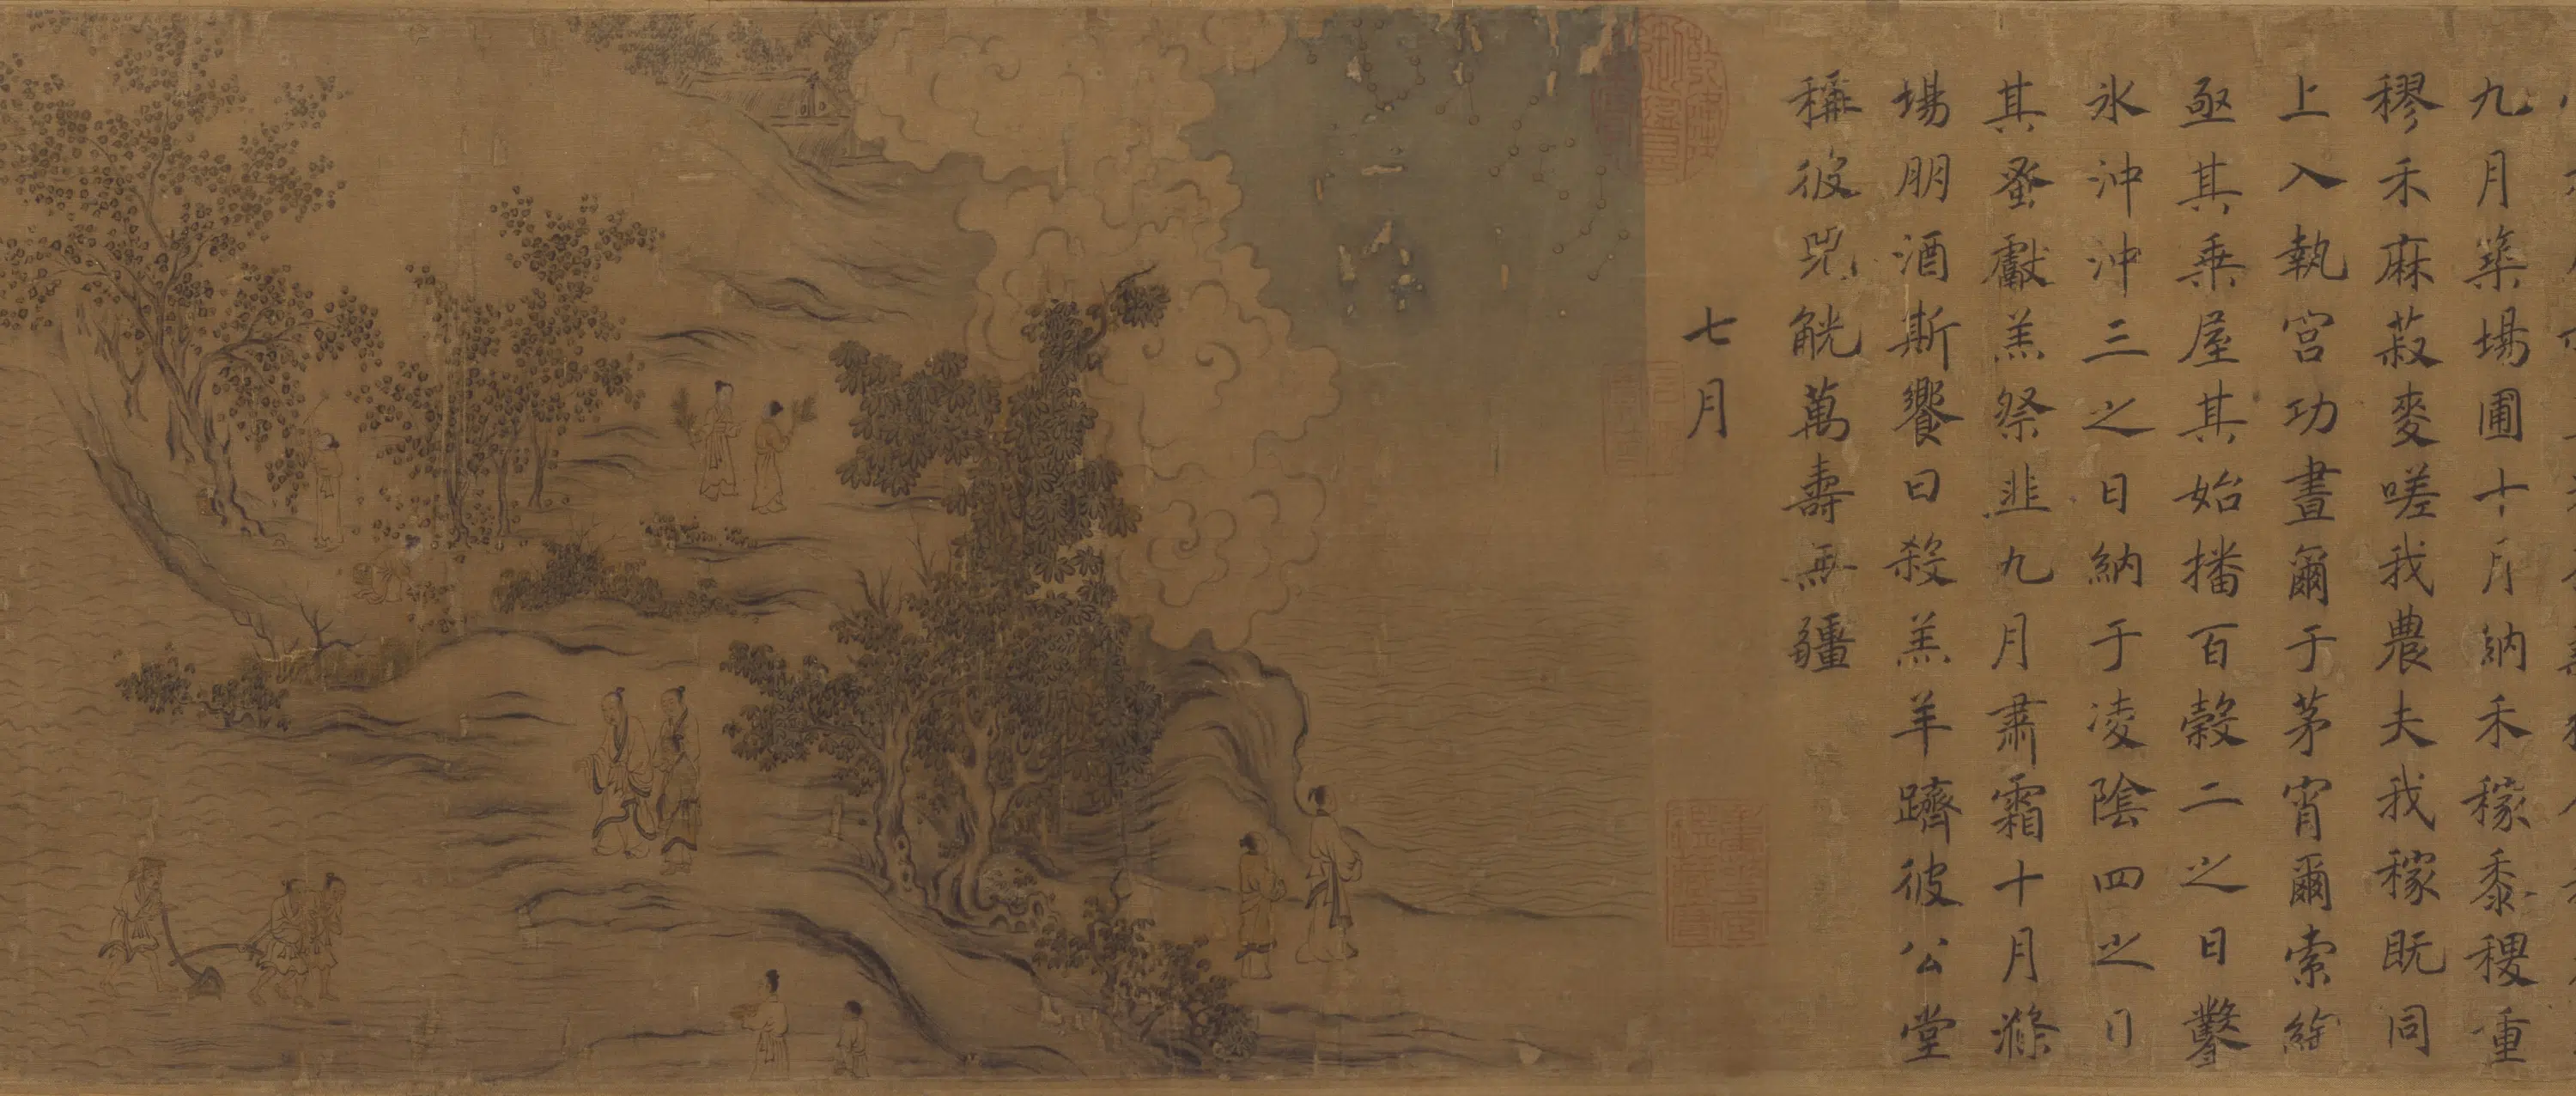 九月築場圃十月納禾稼黍稷重
穋禾麻菽麥嗟我農夫我稼既同
上入執宮功晝爾于茅宵爾索綯
亟其乗屋其始播百穀二之日鑿
氷沖沖三之日納于凌陰四之日
其蚤獻羔祭韭九月肅霜十月滌
場朋酒斯饗曰殺羔羊躋彼公堂
稱彼兕觥萬壽無疆
七月